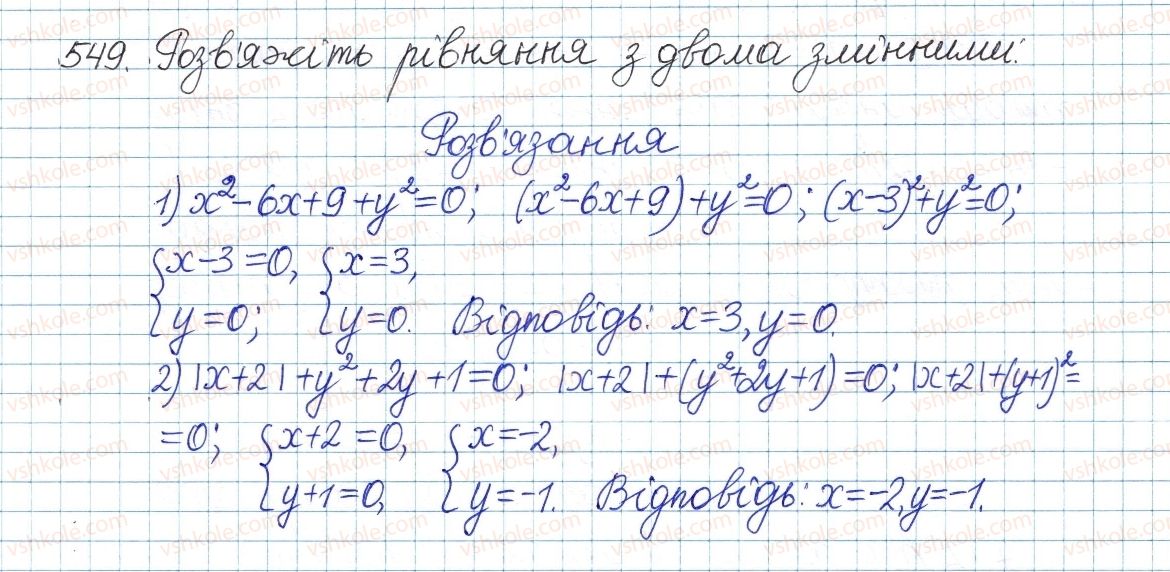 549. Розв'яжіть рівняння з двома змінними:
Розв'язання
1) x²-6x+9+y²=0; (x²-6x+9)+y²=0; (x-3)²+y²=0;
{x-3=0, {x=3,
y=0; y=0. Відповідь: x=3, y=0.
2) |x+2|+y²+2y+1=0; |x+2|+(y²+2y+1)=0; |x+2|+(y+1)²=
=0; {x+2=0, {x=-2,
y+1=0, y=-1. Відповідь: x=-2, y=-1.
vshkole.com